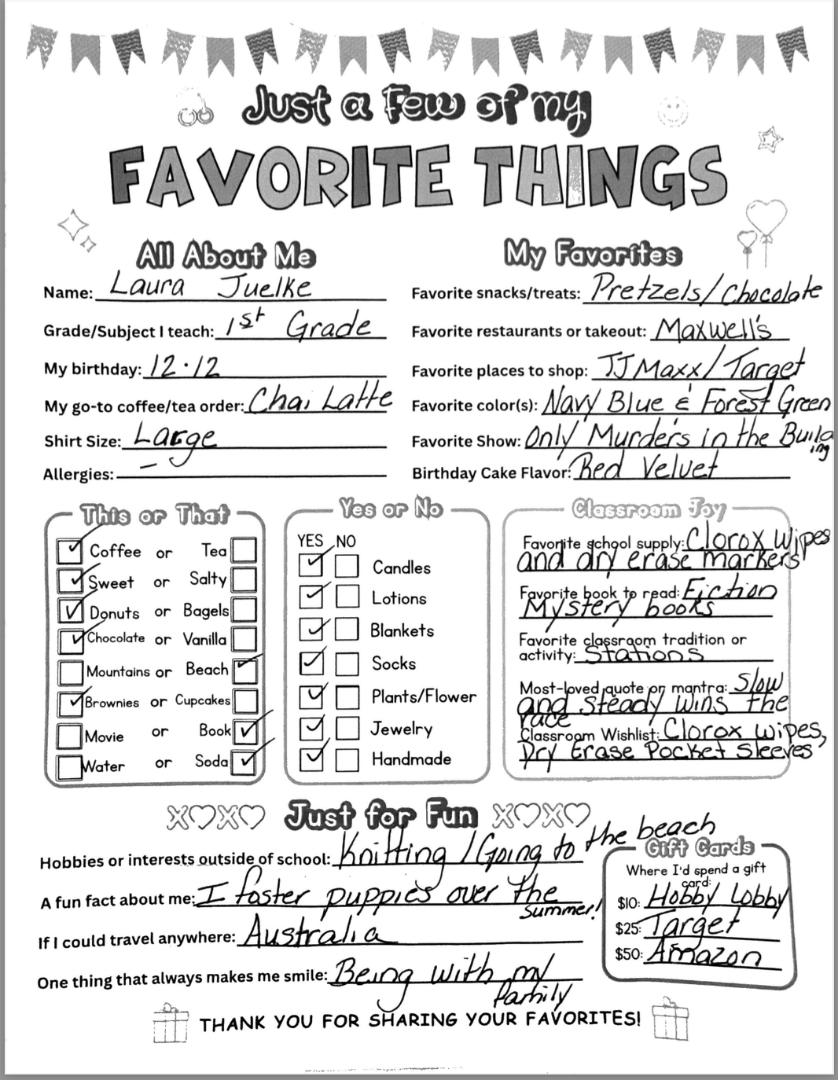 Just a Few of my
FAVORITE THINGS
All About Me
Name: Laura Juelke
Grade/Subject I teach: 1st Grade
My birthday: 12·12
My go-to coffee/tea order: Chai Latte
Shirt Size: Large
Allergies: –
My Favorites
Favorite snacks/treats: Pretzels/Chocolate
Favorite restaurants or takeout: Maxwell's
Favorite places to shop: TJMaxx/Target
Favorite color(s): Navy Blue & Forest Green
Favorite Show: Only Murders in the Build
ing
Birthday Cake Flavor: Red Velvet
This or That
Coffee or Tea
Sweet or Salty
Donuts or Bagels
Chocolate or Vanilla
Mountains or Beach
Brownies or Cupcakes
Movie or Book
Water or Soda
Yes or No
YES NO
Candles
Lotions
Blankets
Socks
Plants/Flower
Jewelry
Handmade
Classroom Joy
Favorite school supply: Clorox Wipes
and dry erase markers
Favorite book to read: Fiction
Mystery books
Favorite classroom tradition or
activity: Stations
Most-loved quote or mantra: Slow
and steady wins the
race
Classroom Wishlist: Clorox wipes,
Dry Erase Pocket Sleeves
XOXO Just for Fun XOXO
Hobbies or interests outside of school: Knitting /Going to the beach
A fun fact about me: I foster puppies over the
summer!
If I could travel anywhere: Australia
One thing that always makes me smile: Being with my
family
Gift Cards
Where I'd spend a gift
card:
$10: Hobby Lobby
$25: Target
$50: Amazon
THANK YOU FOR SHARING YOUR FAVORITES!